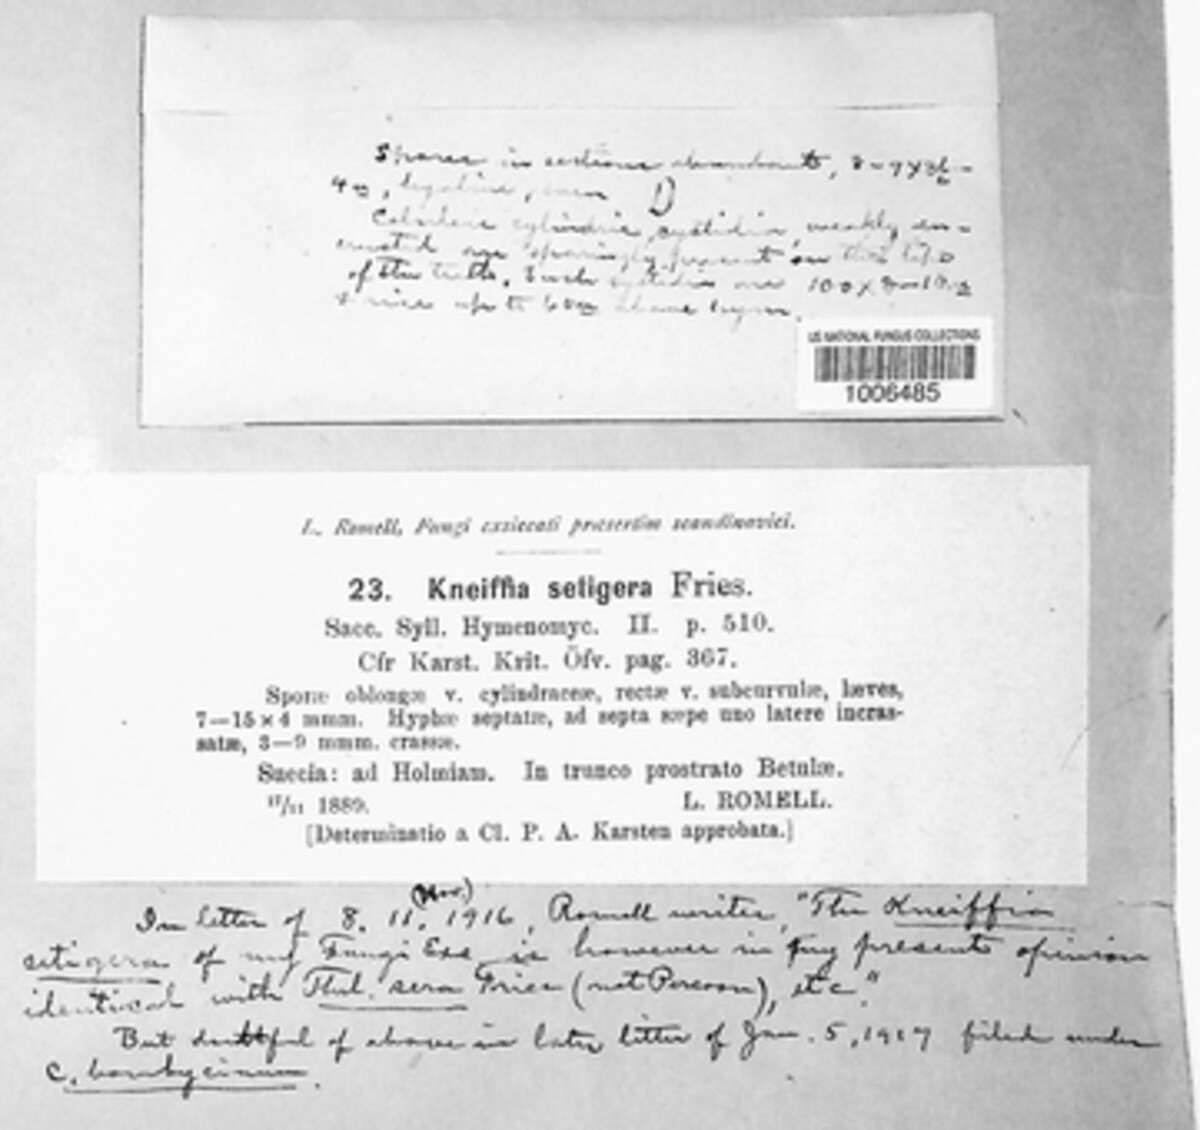 Spores in sections abundant, 8-9 x 3½-
4 µ, hyaline, even D
cylindric cystidia, weakly en-
crusted are sparingly present on the tips
of the teeth. Such cystidia are 100 x 8-10 µ
up to 60 µ above hym.
US NATIONAL FUNGUS COLLECTIONS
1006485
L. Romell, Fungi exsiccati præsertim scandinavici.
23. Kneiffia setigera Fries.
Sacc. Syll. Hymenomyc. II. p. 510.
Cfr Karst. Krit. Öfv. pag. 367.
Sporæ oblongæ v. cylindraceæ, rectæ v. subcurvulæ, læves,
7—15 × 4 mmm. Hyphæ septatæ, ad septa sæpe uno latere incras-
satæ, 3—9 mmm. crassæ.
Suecia: ad Holmiam. In trunco prostrato Betulæ.
17/11 1889. L. ROMELL.
[Determinatio a Cl. P. A. Karsten approbata.]
(Nov.)
In letter of 8. 11. 1916, Romell writes, "The Kneiffia
setigera of my Fungi Exs. is however in my present opinion
identical with Thel. sera Fries (not Persoon), etc."
But doubtful of above in later letter of Jan. 5, 1917 filed under
C. bombycinum.